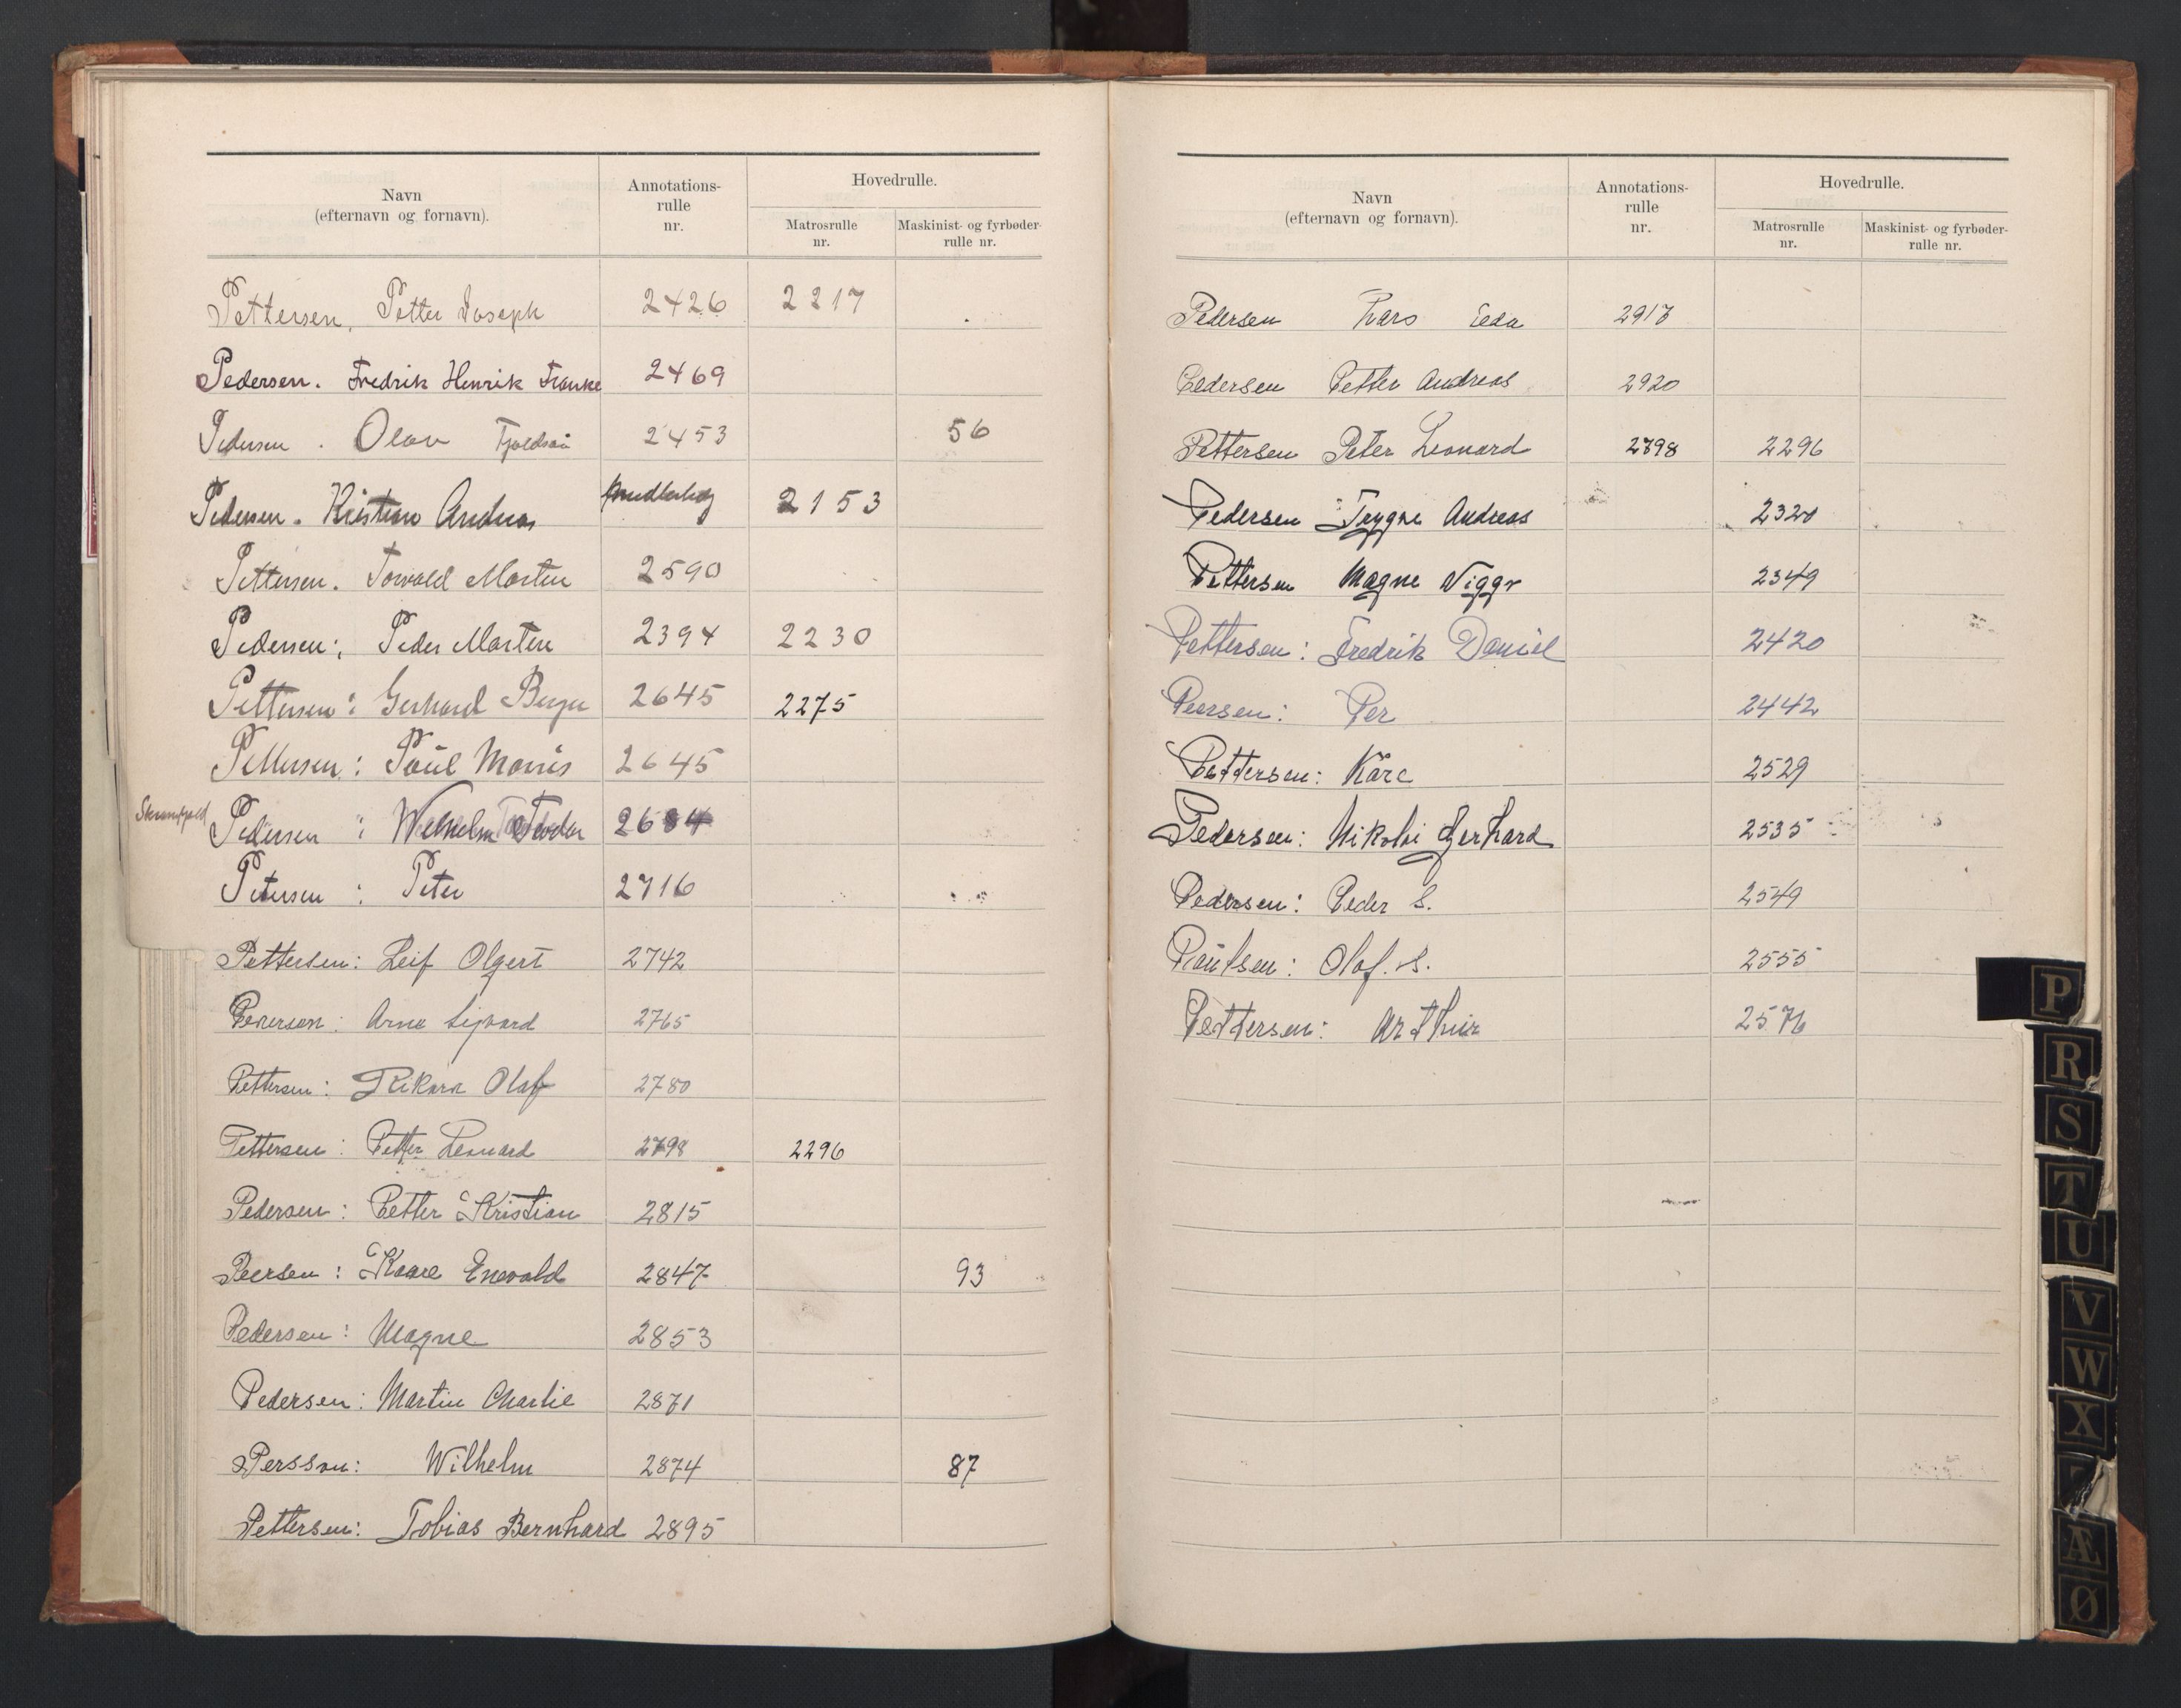 Navn
(efternavn og fornavn).
Annotations-
rulle
nr.
Hovedrulle.
Matrosrulle
nr.
Maskinist- og fyrbøder-
rulle nr.
Pettersen, Petter Joseph 2426 2217
Pedersen. Fredrik Henrik Franke 2469
Pedersen. Olav 2453 56
Pedersen. Kristian Andreas 2153
Pettersen. Torvald Morten 2590
Pedersen; Peder Morten 2394 2230
Pettersen: Gerhard Birger 2645 2275
Pettersen: Paul Monris 2645
Pedersen: Wilhelm Teodor 2684
Petersen: Peter 2716
Pettersen: Leif Olgert 2742
Petersen: Arne Sigvard 2765
Pettersen: Rikard Olaf 2780
Pettersen: Petter Leonard 2798 2296
Pedersen: Petter Kristian 2815
Peersen: Kaare Enevald 2847 93
Pedersen: Magne 2853
Pedersen: Martin Charlie 2871
Persson: Wilhelm 2874 87
Pettersen: Tobias Bernhard 2895
Navn
(efternavn og fornavn).
Annotations-
rulle
nr.
Hovedrulle.
Matrosrulle
nr.
Maskinist- og fyrbøder-
rulle nr.
Pedersen Lars 2917
Pedersen Petter Andreas 2920
Pettersen Peter Leonard 2798 2296
Pedersen Trygve Andreas 2320
Pettersen Magne Viggo 2349
Pettersen: Fredrik Daniel 2420
Peersen: Per 2442
Pettersen: Kåre 2529
Pedersen: Nikolai Gerhard 2535
Pedersen: Peder S. 2549
Paulsen: Olaf. S. 2555
Pettersen: Arthur 2576
P
R
S
T
U
V
W
X
Æ
Ø